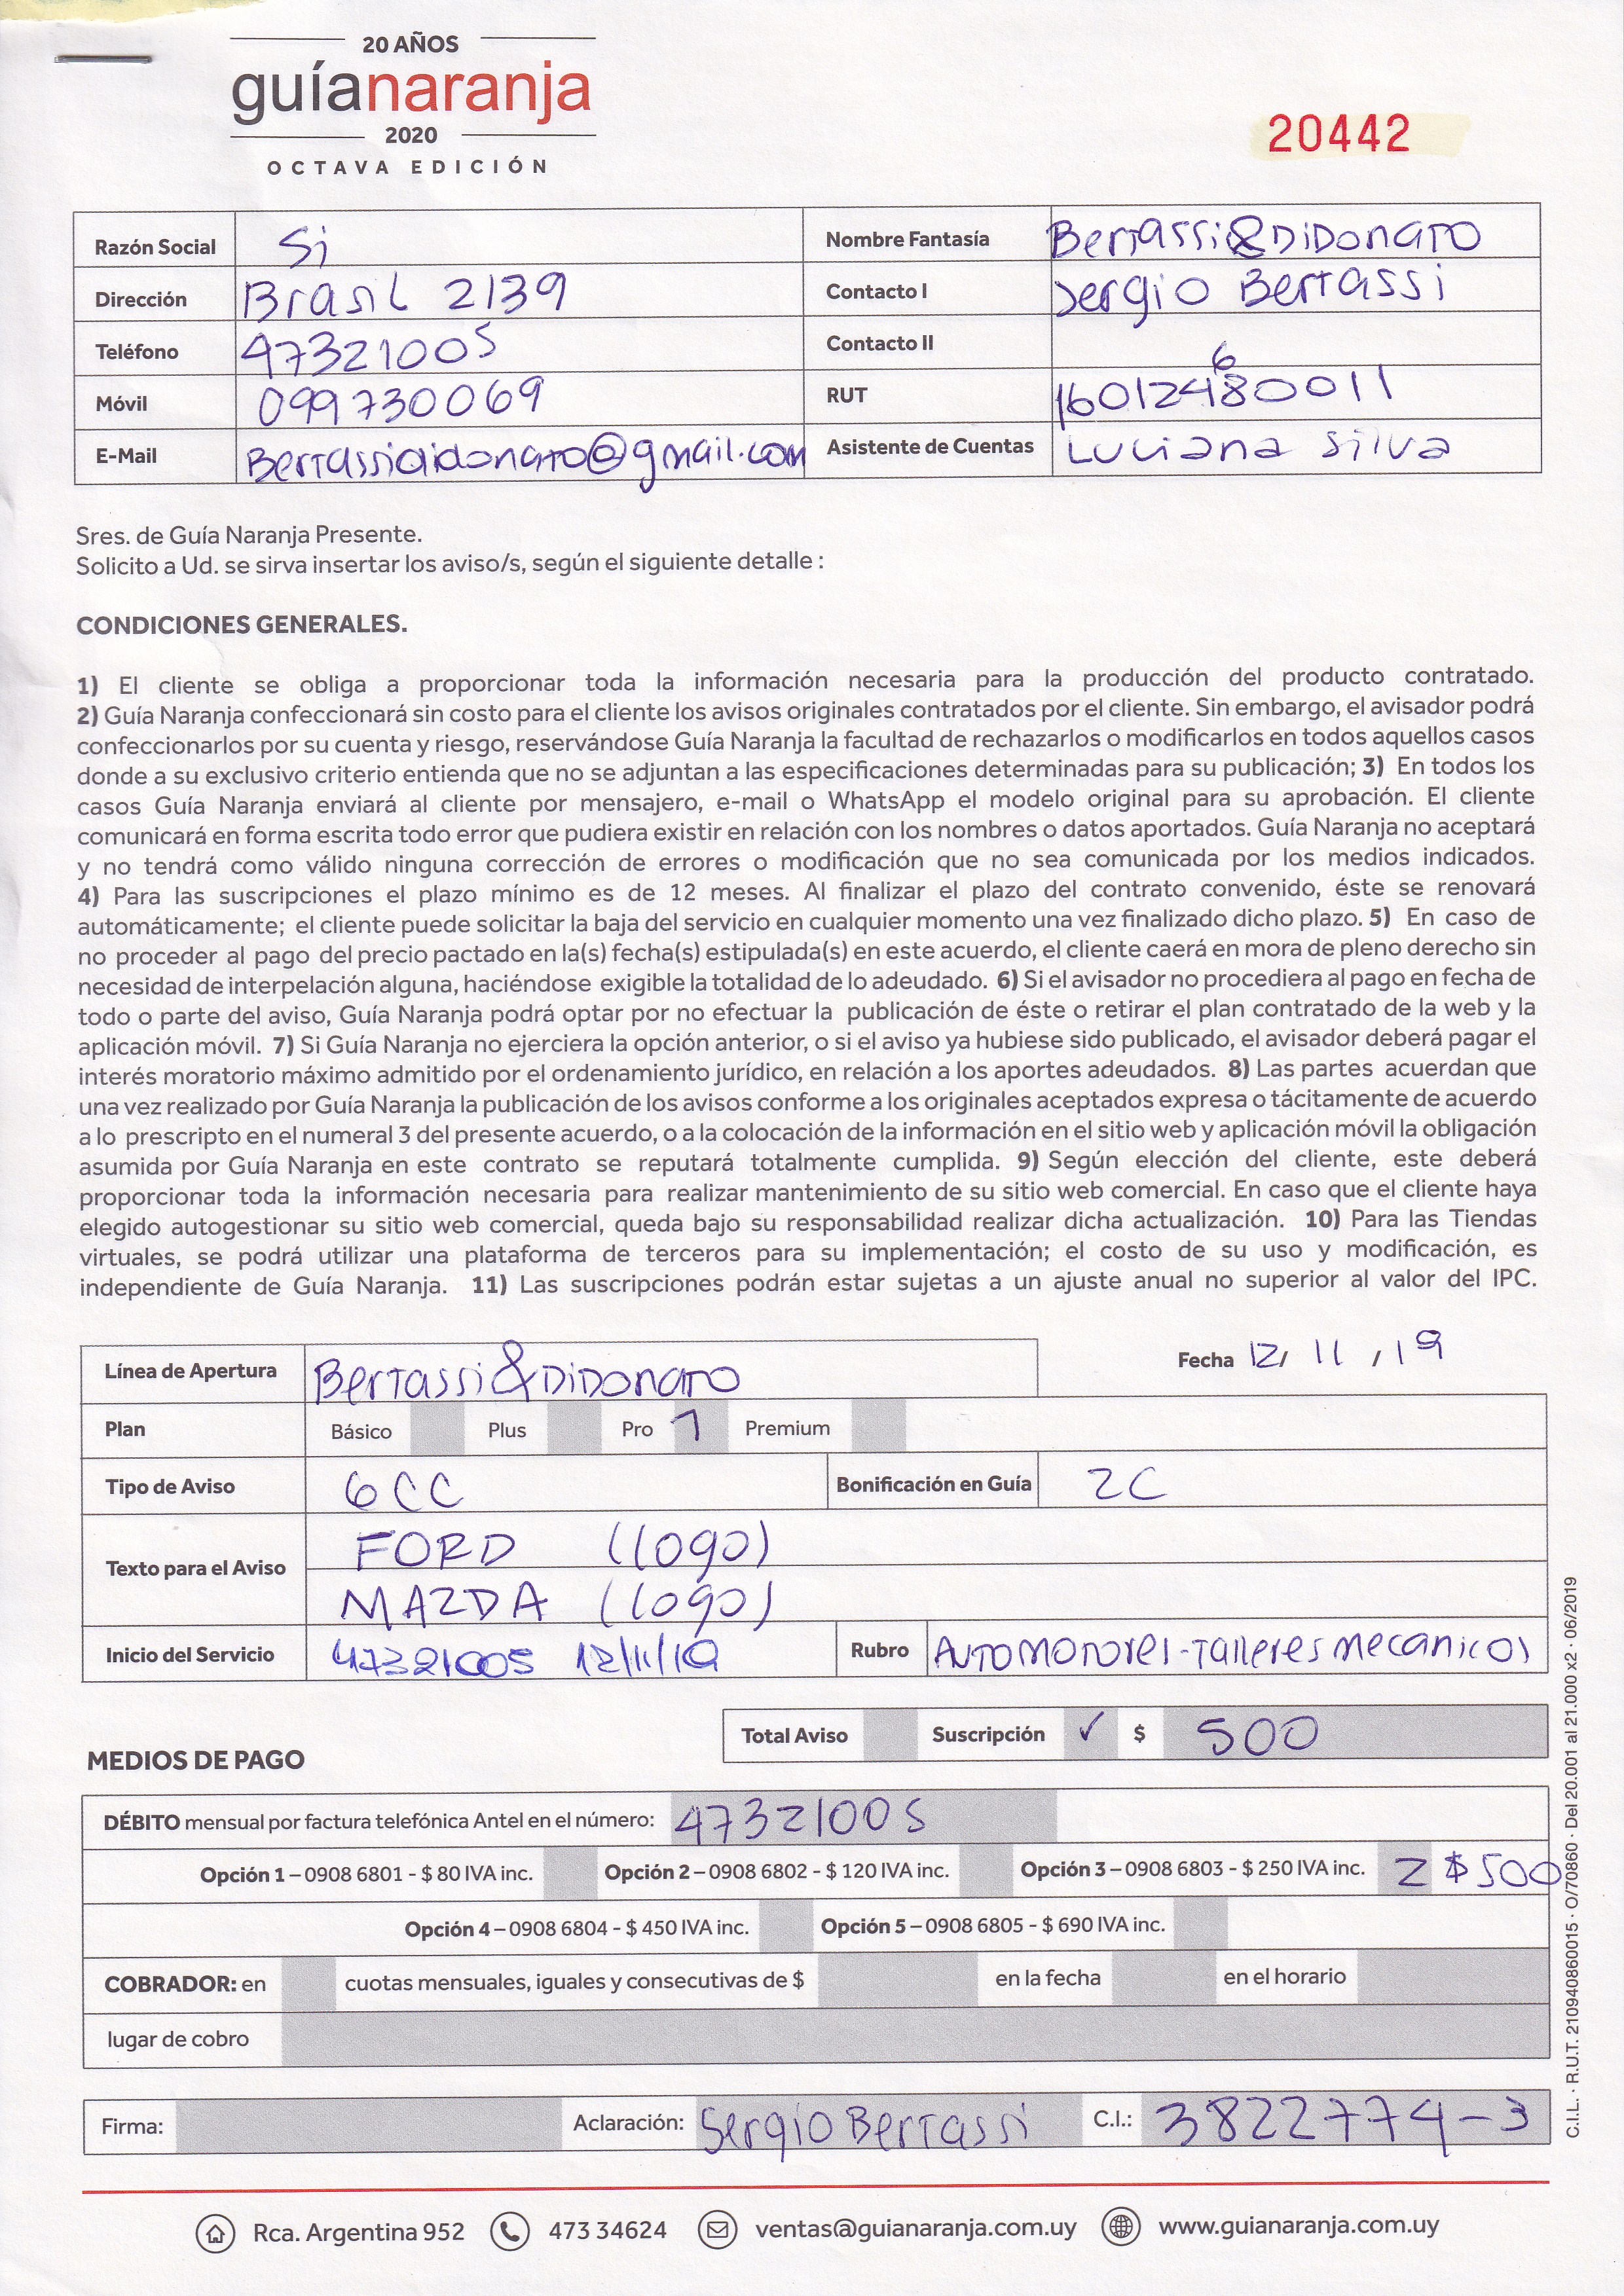 20 AÑOS
guíanaranja
2020
OCTAVA EDICIÓN
20442
Razón Social Si Nombre Fantasía Bertassi&DiDonato
Dirección Brasil 2139 Contacto I Sergio Bertassi
Teléfono 47321005 Contacto II
Móvil 099730069 RUT
E-Mail Bertassididonato@gmail.com Asistente de Cuentas Luciana Silva
Sres. de Guía Naranja Presente.
Solicito a Ud. se sirva insertar los aviso/s, según el siguiente detalle :
CONDICIONES GENERALES.
1) El cliente se obliga a proporcionar toda la información necesaria para la producción del producto contratado.
2) Guía Naranja confeccionará sin costo para el cliente los avisos originales contratados por el cliente. Sin embargo, el avisador podrá
confeccionarlos por su cuenta y riesgo, reservándose Guía Naranja la facultad de rechazarlos o modificarlos en todos aquellos casos
donde a su exclusivo criterio entienda que no se adjuntan a las especificaciones determinadas para su publicación; 3) En todos los
casos Guía Naranja enviará al cliente por mensajero, e-mail o WhatsApp el modelo original para su aprobación. El cliente
comunicará en forma escrita todo error que pudiera existir en relación con los nombres o datos aportados. Guía Naranja no aceptará
y no tendrá como válido ninguna corrección de errores o modificación que no sea comunicada por los medios indicados.
4) Para las suscripciones el plazo mínimo es de 12 meses. Al finalizar el plazo del contrato convenido, éste se renovará
automáticamente; el cliente puede solicitar la baja del servicio en cualquier momento una vez finalizado dicho plazo. 5) En caso de
no proceder al pago del precio pactado en la(s) fecha(s) estipulada(s) en este acuerdo, el cliente caerá en mora de pleno derecho sin
necesidad de interpelación alguna, haciéndose exigible la totalidad de lo adeudado. 6) Si el avisador no procediera al pago en fecha de
todo o parte del aviso, Guía Naranja podrá optar por no efectuar la publicación de éste o retirar el plan contratado de la web y la
aplicación móvil. 7) Si Guía Naranja no ejerciera la opción anterior, o si el aviso ya hubiese sido publicado, el avisador deberá pagar el
interés moratorio máximo admitido por el ordenamiento jurídico, en relación a los aportes adeudados. 8) Las partes acuerdan que
una vez realizado por Guía Naranja la publicación de los avisos conforme a los originales aceptados expresa o tácitamente de acuerdo
a lo prescripto en el numeral 3 del presente acuerdo, o a la colocación de la información en el sitio web y aplicación móvil la obligación
asumida por Guía Naranja en este contrato se reputará totalmente cumplida. 9) Según elección del cliente, este deberá
proporcionar toda la información necesaria para realizar mantenimiento de su sitio web comercial. En caso que el cliente haya
elegido autogestionar su sitio web comercial, queda bajo su responsabilidad realizar dicha actualización. 10) Para las Tiendas
virtuales, se podrá utilizar una plataforma de terceros para su implementación; el costo de su uso y modificación, es
independiente de Guía Naranja. 11) Las suscripciones podrán estar sujetas a un ajuste anual no superior al valor del IPC.
Línea de Apertura Bertassi&DiDonato Fecha 12/ 11 /19
Plan Básico Plus Pro 1 Premium
Tipo de Aviso 6CC Bonificación en Guía 2C
Texto para el Aviso FORD (logo)
MAZDA (logo)
Inicio del Servicio 47321005 12/11/19 Rubro AUTOMOTORES-Talleres mecanicos
Total Aviso Suscripción ✓ $ 500
MEDIOS DE PAGO
DÉBITO mensual por factura telefónica Antel en el número: 47321005
Opción 1 – 0908 6801 - $ 80 IVA inc. Opción 2 – 0908 6802 - $ 120 IVA inc. Opción 3 – 0908 6803 - $ 250 IVA inc. 2 $500
Opción 4 – 0908 6804 - $ 450 IVA inc. Opción 5 – 0908 6805 - $ 690 IVA inc.
COBRADOR: en cuotas mensuales, iguales y consecutivas de $ en la fecha en el horario
lugar de cobro
Firma: Aclaración: Sergio Bertassi C.I.: 3822774-3
C.I.L. · R.U.T. 210940860015 · O/70860 · Del 20.001 al 21.000 x2 · 06/2019
Rca. Argentina 952 473 34624 ventas@guianaranja.com.uy www.guianaranja.com.uy